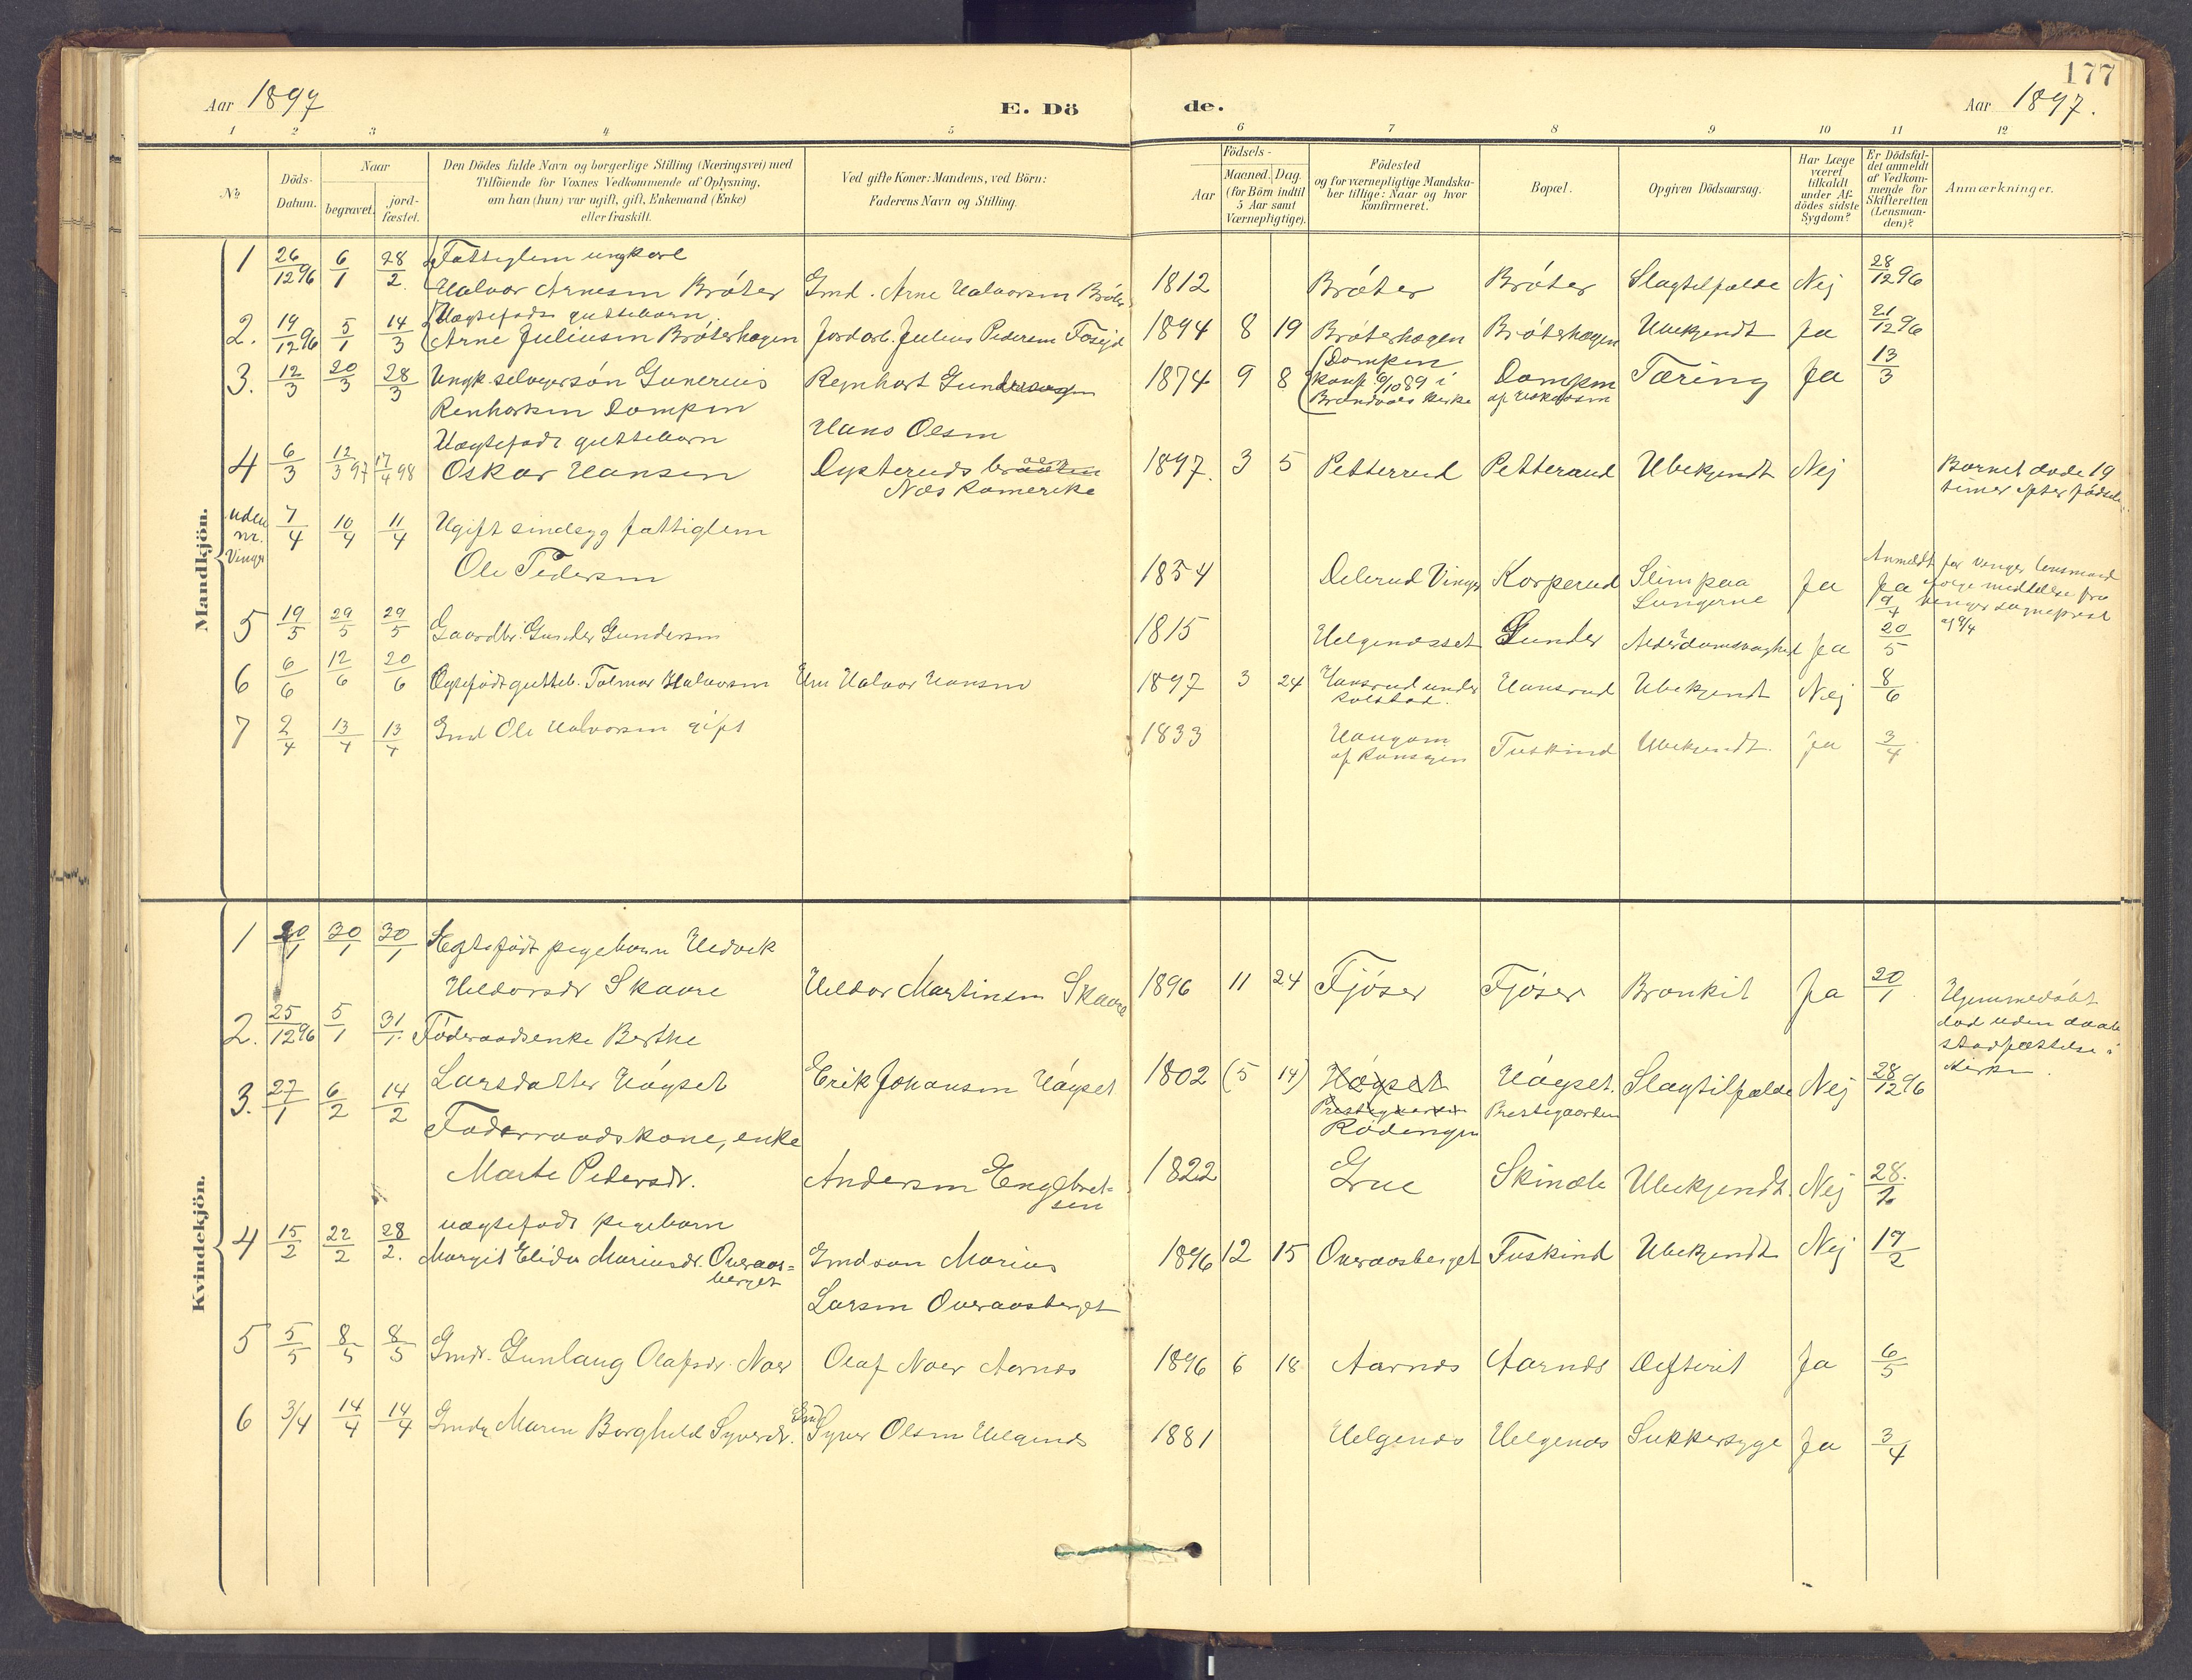 177
Aar 1897
E. Dö
de.
Aar 1897.
1 2 3 4 5 6 7 8 9 10 11 12
№
Döds-Datum.
Naar
begravet.
jord-fæstet.
Den Dödes fulde Navn og borgerlige Stilling (Næringsvei) med
Tilföiende for Voxnes Vedkommende af Oplysning,
om han (hun) var ugift, gift, Enkemand (Enke)
eller fraskilt.
Ved gifte Koner: Mandens, ved Börn:
Faderens Navn og Stilling.
Födsels-
Aar
Maaned.
Dag.
(for Börn indtil
5 Aar samt
Værnepligtige).
Födested
og for værnepligtige Mandska-
ber tillige: Naar og hvor
konfirmeret.
Bopæl.
Opgiven Dödsaarsag.
Har Læge
været
tilkaldt
under Af-
dödes sidste
Sygdom?
Er Dödsfal-
det anmeldt
af Vedkom-
mende for
Skifteretten
(Lensman-
den)?
Anmærkninger.
Mandkjön.
1 26/12 96 6/1 28/2 Fattiglem ungkarl
Halvor Arnesen Bröter Gmd. Arne Halvorsen Bröter 1812 Bröter Bröter Slagtilfælde Nej 28/12 96
2. 19/12 96 5/1 14/3 Uægtefødt guttebarn
Arne Juliusen Bröterhagen Jordarb. Julius Pedersen 1894 8 19 Bröterhagen Bröterhagen Ubekjendt Ja 21/12 96
3. 12/3 20/3 28/3 Ungk. selveiersön Gunerius Reinhart Gundersen 1874 9 8 Dompen
konf. 6/10 89 i
Brandvals kirke Dompen Tæring Ja 13/3
Renhartsen Dompen
4 6/3 12/3 97 17/4 98 Uægtefødt guttebarn Hans Olsen
Oskar Hansen Dysterud 1897. 3 5 Petterud Petterud Ubekjendt Nej Barnet døde 19
timer efter fødselen
Næs Romerike
uden
nr.
Vinger 7/4 10/4 11/4 Ugift sindsyg fattiglem
Ole Pedersen 1854 Vinger Korperud Slim paa
Lungerne Ja Ja 9/4 Anmeldt for Vinger lensmand
ifølge meddelelse fra
Vinger sogneprest
9/4
5 19/5 29/5 29/5 Gaardbr. Gunder Gundersen 1815 Helgenæsset Gunder Alderdomssvaghed Ja 20/5
6 6/6 12/6 20/6 Ægtefødt gutteb. Tolmar Halvorsen Halvor Hansen 1897 3 24 Hansrud under
Kolstad. Hansrud Ubekjendt Nej 8/6
7 2/4 13/4 13/4 Gmd Ole Halvorsen gift 1833 Haugom Tuskind Ubekjendt. Ja 3/4
Kvindekjön.
1 20/1 30/1 30/1 Ægtefødt pigebarn Hedvik
Heldorsdr Skaare Heldor Martinsen Skaare 1896 11 24 Fjöser Fjöser Bronkit Ja 20/1 Hjemmedöbt
død uden daabs
stadfæstelse i
kirken.
2. 25/12 96 5/1 31/1. Föderaadsenke Berthe
Larsdatter Högset Erik Johansen Högset 1802 (5 14) Högset
Rödengen Högset.
Prestegaarden Slagtilfælde Nej 28/12 96
3. 27/1 6/2 14/2 Føderaadskone, enke
Marte Pedersdr. Andersen Engebret-
sen 1822 Grue Skinæle Ubekjendt. Nej 28./1
4 15/2 22/2 28/2. uægtefødt pigebarn
Margit Elida Mariusdr. Overaas-
berget Gmdsøn Marius
Larsen Overaasberget 1896 12 15 Overaasberget Tuskind Ubekjendt Nej 17/2
5 5/5 8/5 8/5 Gmdr. Gunlaug Olafsdr. Noer Olaf Noer Aarnes 1896 6 18 Aarnes Aarnes Difterit Ja 6/5
6 3/4 14/4 14/4 Gmdr Maren Borghild Syversdr. Gmd Syver Olsen Helgenes 1881 Helgenes Helgenes Sukkersyge Ja 3/4